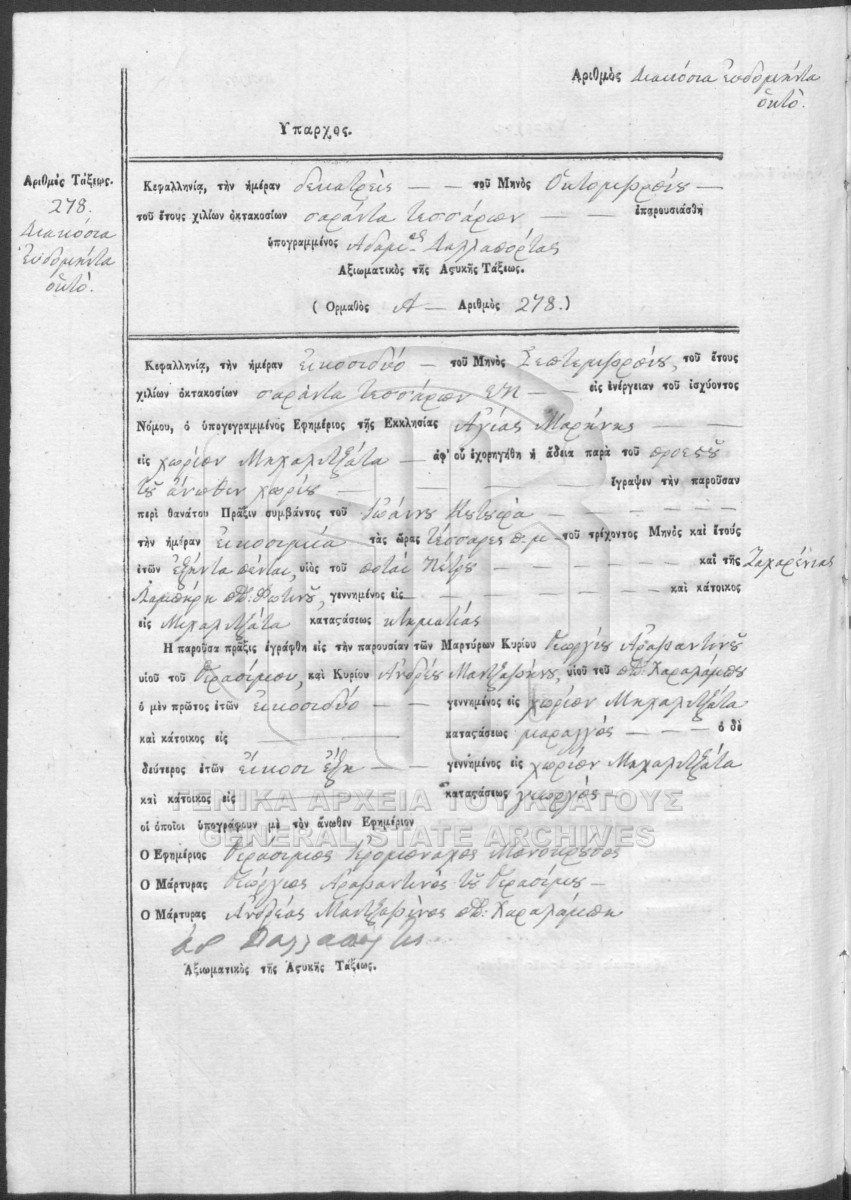 Αριθμὸς Διακόσια Ἑυδομήντα
ὀκτὸ.
Υπαρχος.
Αριθμὸς Τάξεως.
278.
Διακόσια
Ἑυδομήντα
ὀκτὸ.
Κεφαλληνία, τὴν ἡμέραν δεκατρεῖς — — τοῦ Μηνὸς Ὀκτομβρίȣ —
τοῦ ἔτους χιλίων ὀκτακοσίων σαράντα τεσσάρων — — ἐπαρουσιάσθη
ὑπογραμμένος Δαλλαπόρτας
Αξιωματικὸς τῆς Ἀςυκῆς Τάξεως.
( Ορμαθὸς Α — Αριθμὸς 278. )
Κεφαλληνία, τὴν ἡμέραν εἰκοσιδύο — τοῦ Μηνὸς Σεπτεμβρίȣ, τοῦ ἔτους
χιλίων ὀκτακοσίων σαράντα τεσσάρων ΕΠ — εἰς ἐνέργειαν τοῦ ἰσχύοντος
Νόμου, ὁ ὑπογεγραμμένος Ἐφημέριος τῆς Ἐκκλησίας Ἁγίας Μαρήνης — —
εἰς χωρίον Μηχαλιτζάτα — ἀφ' οὗ ἐχορηγήθη ἡ ἄδεια παρὰ τοῦ προεςȣ͂
τȣ͂ ἄνωθεν χωρίȣ — — — — ἔγραψεν τὴν παροῦσαν
περὶ θανάτου Πρᾶξιν συμβάντος τοῦ Ἰωάννȣ — — — — —
τὴν ἡμέραν εἰκοσιμία τὰς ὥρας τέσσαρες π.μ. τοῦ τρέχοντος Μηνὸς καὶ ἔτους
ἐτῶν ἑξήντα πέντε, υἱὸς τοῦ ποταὶ Πέτρȣ — — — — καὶ τῆς Ζαχαρένιας
Φωτινȣ͂, γεννημένος εἰς — — — — — καὶ κάτοικος
εἰς Μιχαλιτζάτα καταςάσεως κτηματίας
Η παροῦσα πρᾶξις ἐγράφθη εἰς τὴν παρουσίαν τῶν Μαρτύρων Κυρίου Γιωργίȣ Ἀραβαντινȣ͂
υἱοῦ τοῦ Γερασίμου, καὶ Κυρίου Ἀνδρέȣ Μαντζαβήνȣ, υἱοῦ τοῦ πδ: Χαραλάμπȣ
ὁ μὲν πρῶτος ἐτῶν εἰκοσιδύο — — γεννημένος εἰς χωρίον Μηχαλιτζάτα
καὶ κάτοικος εἰς — καταςάσεως μαραγγὸς — — ὁ δὲ
δεύτερος ἐτῶν εἴκοσι ἕξη — — γεννημένος εἰς χωρίον Μηχαλιτζάτα
καὶ κάτοικος εἰς — καταςάσεως γιωργὸς
οἱ ὁποῖοι ὑπογράφουν μὲ τὸν ἄνωθεν Ἐφημέριον
Ο Εφημέριος Γεράσιμος Ἱερομόναχος
Ο Μάρτυρας Γιώργιος Ἀραβαντινὸς τȣ͂ Γερασίμȣ —
Ο Μάρτυρας Ἀνδρέας Μαντζαβήνος πδ: Χαραλάμπη
Δαλλαπόρτας
Αξιωματικὸς τῆς Ἀςυκῆς Τάξεως.
ΓΕΝΙΚΑ ΑΡΧΕΙΑ ΤΟΥ ΚΡΑΤΟΥΣ
GENERAL STATE ARCHIVES